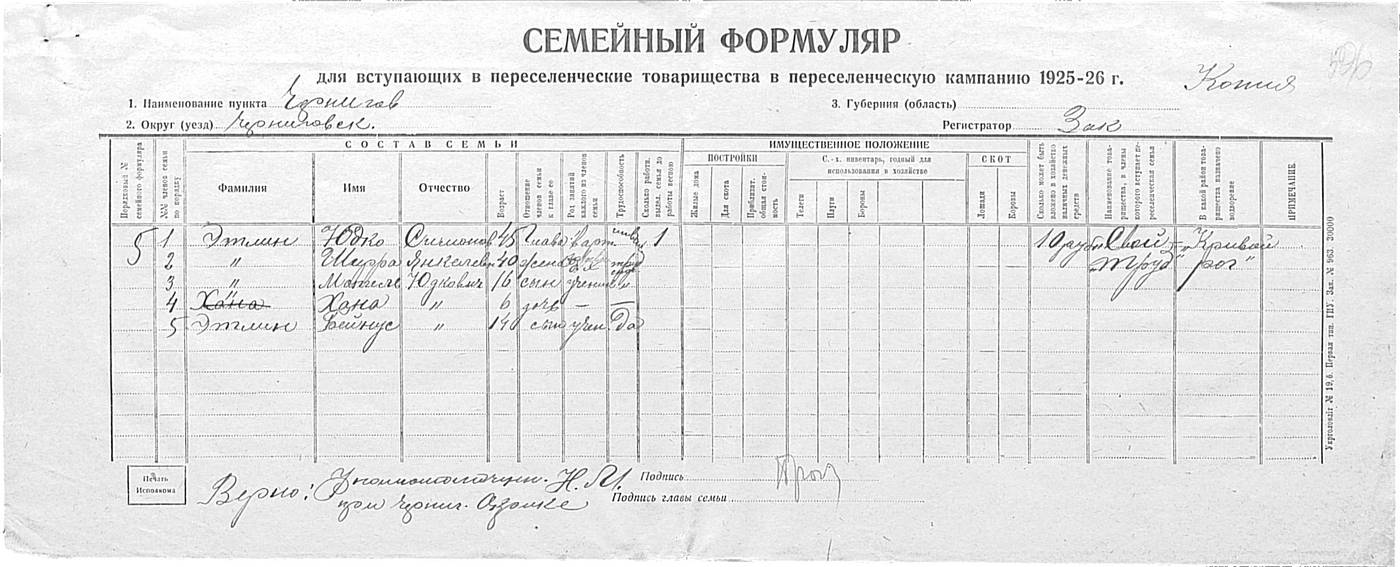 СЕМЕЙНЫЙ ФОРМУЛЯР
для вступающих в переселенческие товарищества в переселенческую кампанию 1925-26 г.
Копия
1. Наименование пункта Чернигов
3. Губерния (область)
2. Округ (уезд) Черниговск.
Регистратор Зак
СОСТАВ СЕМЬИ
ИМУЩЕСТВЕННОЕ ПОЛОЖЕНИЕ
Порядковый № семейного формуляра
№№ членов семьи по порядку
Фамилия
Имя
Отчество
Возраст
Отношение членов семьи к главе ее
Род занятий каждого из членов семьи
Трудоспособность
Сколько работн. вызыл. семья до работы весною
ПОСТРОЙКИ
Жилые дома
Для скота
Приблизит. общая стоимость
С.-х. инвентарь, годный для использования в хозяйстве
Телеги
Плуги
Бороны
СКОТ
Лошади
Коровы
Сколько может быть вложено в хозяйство наличных денежных средств
Наименование товарищества, в члены которого вступает переселенческая семья
В какой район товарищества назначено водворение
ПРИМЕЧАНИЕ.
5 1 Этлин Юдко 45 глава 1 Свой Кривой
2 " Шифра Янкелев 40 жена "труд" рог"
3 " Юдкович 16 сын ученик "
4 Хана Хана " 6 дочь — —
5 Этлин Бейнус " 14 сын учен да
Укрголовліт № 19,б. Первая тип. ГПУ. Зак. № 963. 30000
Печать
Исполкома
Верно: Уполномочен. Н.М. Подпись
при Черниг. Озомке Подпись главы семьи